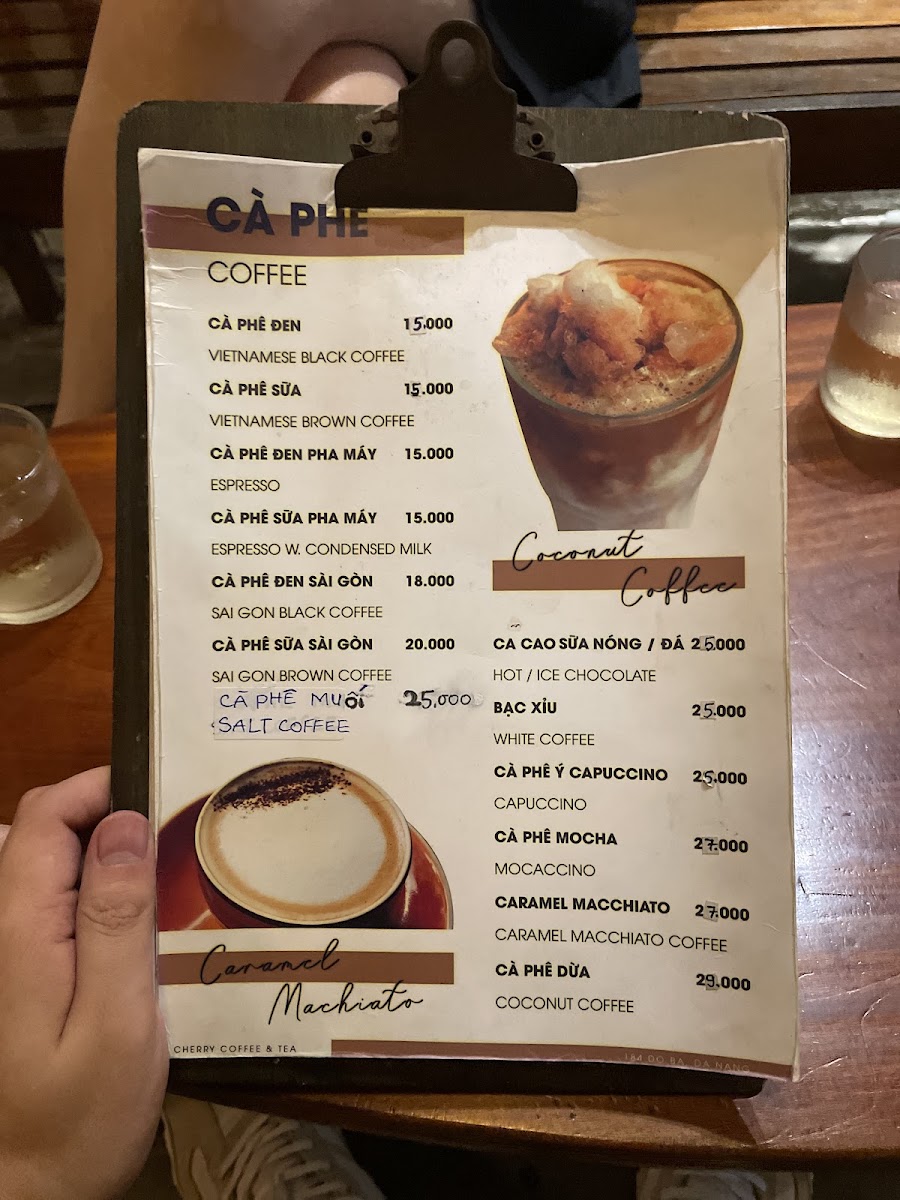 CÀ PHÊ
COFFEE
CÀ PHÊ ĐEN 15.000
VIETNAMESE BLACK COFFEE
CÀ PHÊ SỮA 15.000
VIETNAMESE BROWN COFFEE
CÀ PHÊ ĐEN PHA MÁY 15.000
ESPRESSO
CÀ PHÊ SỮA PHA MÁY 15.000
ESPRESSO W. CONDENSED MILK
CÀ PHÊ ĐEN SÀI GÒN 18.000
SAI GON BLACK COFFEE
CÀ PHÊ SỮA SÀI GÒN 20.000
SAI GON BROWN COFFEE
CÀ PHÊ MUỐI 25,000
SALT COFFEE
Caramel
Machiato
CHERRY COFFEE & TEA
Coconut
Coffee
CA CAO SỮA NÓNG / ĐÁ 25.000
HOT / ICE CHOCOLATE
BẠC XỈU 25.000
WHITE COFFEE
CÀ PHÊ Ý CAPUCCINO 25.000
CAPUCCINO
CÀ PHÊ MOCHA 27.000
MOCACCINO
CARAMEL MACCHIATO 27.000
CARAMEL MACCHIATO COFFEE
CÀ PHÊ DỪA 29.000
COCONUT COFFEE
184 DO BA, DA NANG